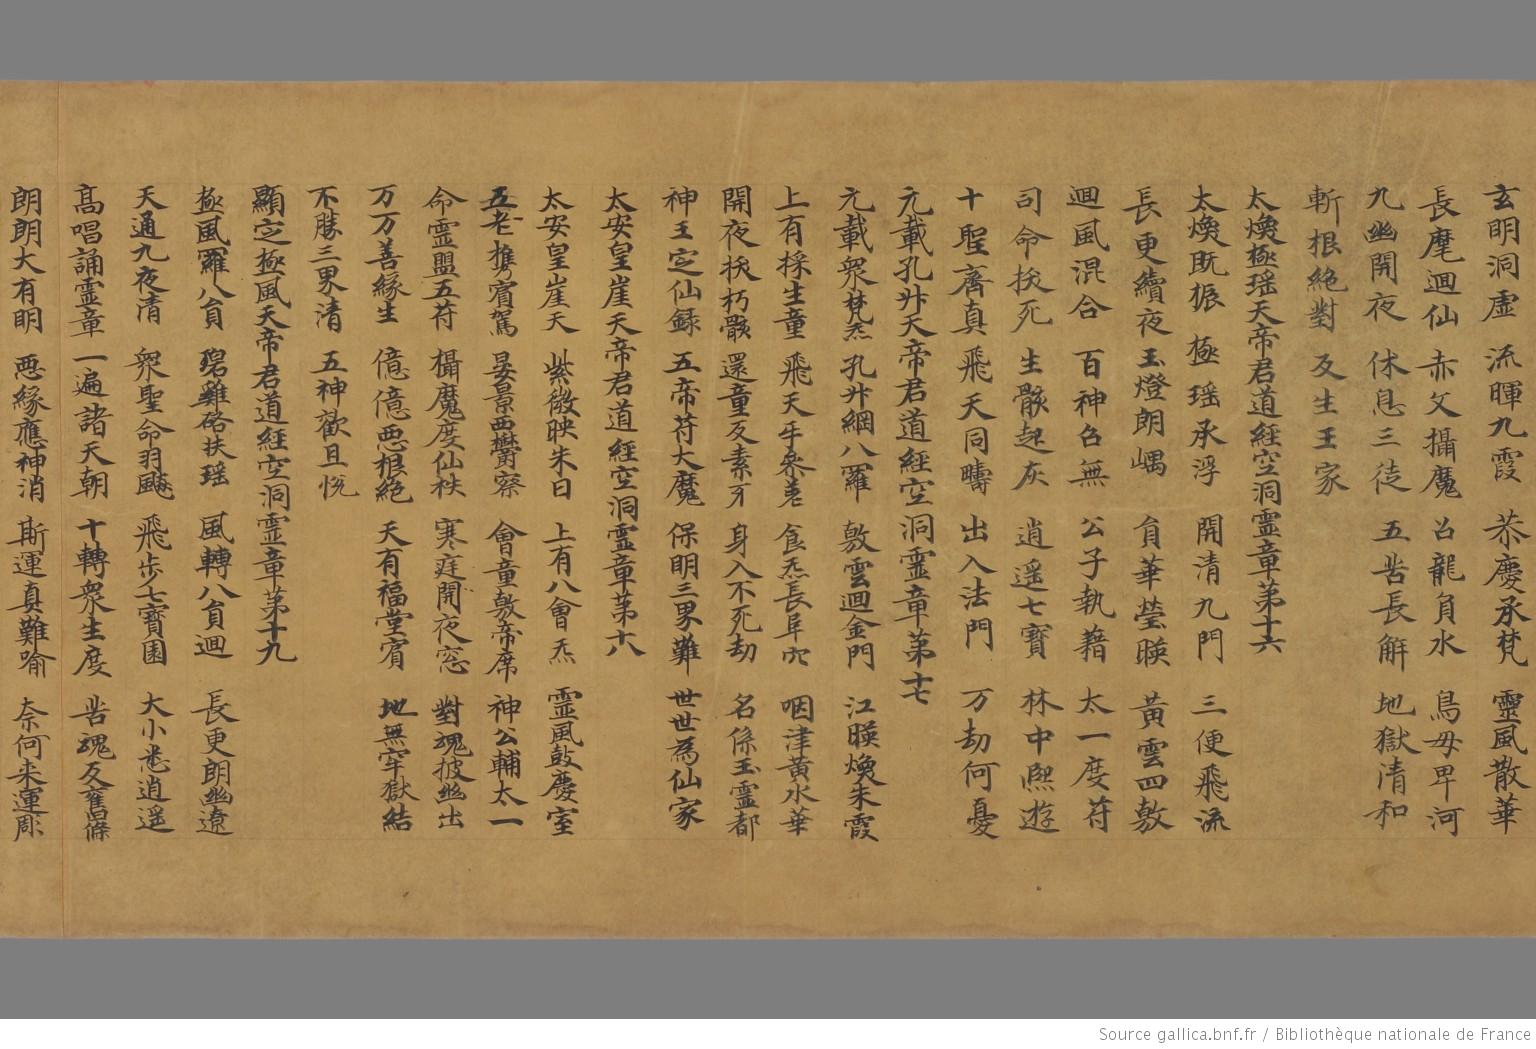 玄明洞虛 流暉九霞 恭慶承梵 靈風散華
長麾迴仙 赤父攝魔 召龍負水 鳥母卑河
九幽開夜 休息三徒 五苦長解 地獄清和
斬根絶對 反生王家
太煥極瑶天帝君道經空洞霊章苐十六
太煥既振 極瑶承浮 開清九門 三便飛流
長更續夜 玉燈朗嵎 負華瑩暎 黃雲四敷
迴風混合 百神名無 公子執藉 太一度苻
司命拔死 生骸起灰 逍遥七寶 林中熈遊
十聖齊真 飛天同疇 出入法門 万劫何憂
元載孔升天帝君道經空洞霊章苐十七
元載衆梵炁 孔升綱八羅 敷雲迴金門 江暎煥朱霞
上有採生童 飛天手參差 食炁長阜宍 咽津黄水華
開夜拔朽骸 還童反素牙 身入不死劫 名係玉霊都
神王定仙録 五帝苻大魔 保明三界難 世世為仙家
太安皇崖天帝君道經空洞霊章苐十八
太安皇崖天 紫微映朱日 上有八會炁 霊風鼓慶室
五老携賓駕 晏景西欝察 會童敷帝席 神公輔太一
命霊盟五苻 攝魔度仙秩 寒庭開夜窓 對魂披幽出
万万善緣生 億億惡根絶 天有福堂賓 地無牢獄結
不勝三界清 五神歡且悦
顯定極風天帝君道經空洞霊章苐十九
極風羅八負 碧雞硌扶瑶 風轉八負迴 長更朗幽遼
天通九夜清 衆聖命羽飇 飛步七寶園 大小悉逍遥
高唱誦霊章 一遍諸天朝 十轉衆生度 苦魂反舊條
朗朗大有明 惡緣應神消 斯運真難喻 奈何来運彫
Source gallica.bnf.fr / Bibliothèque nationale de France